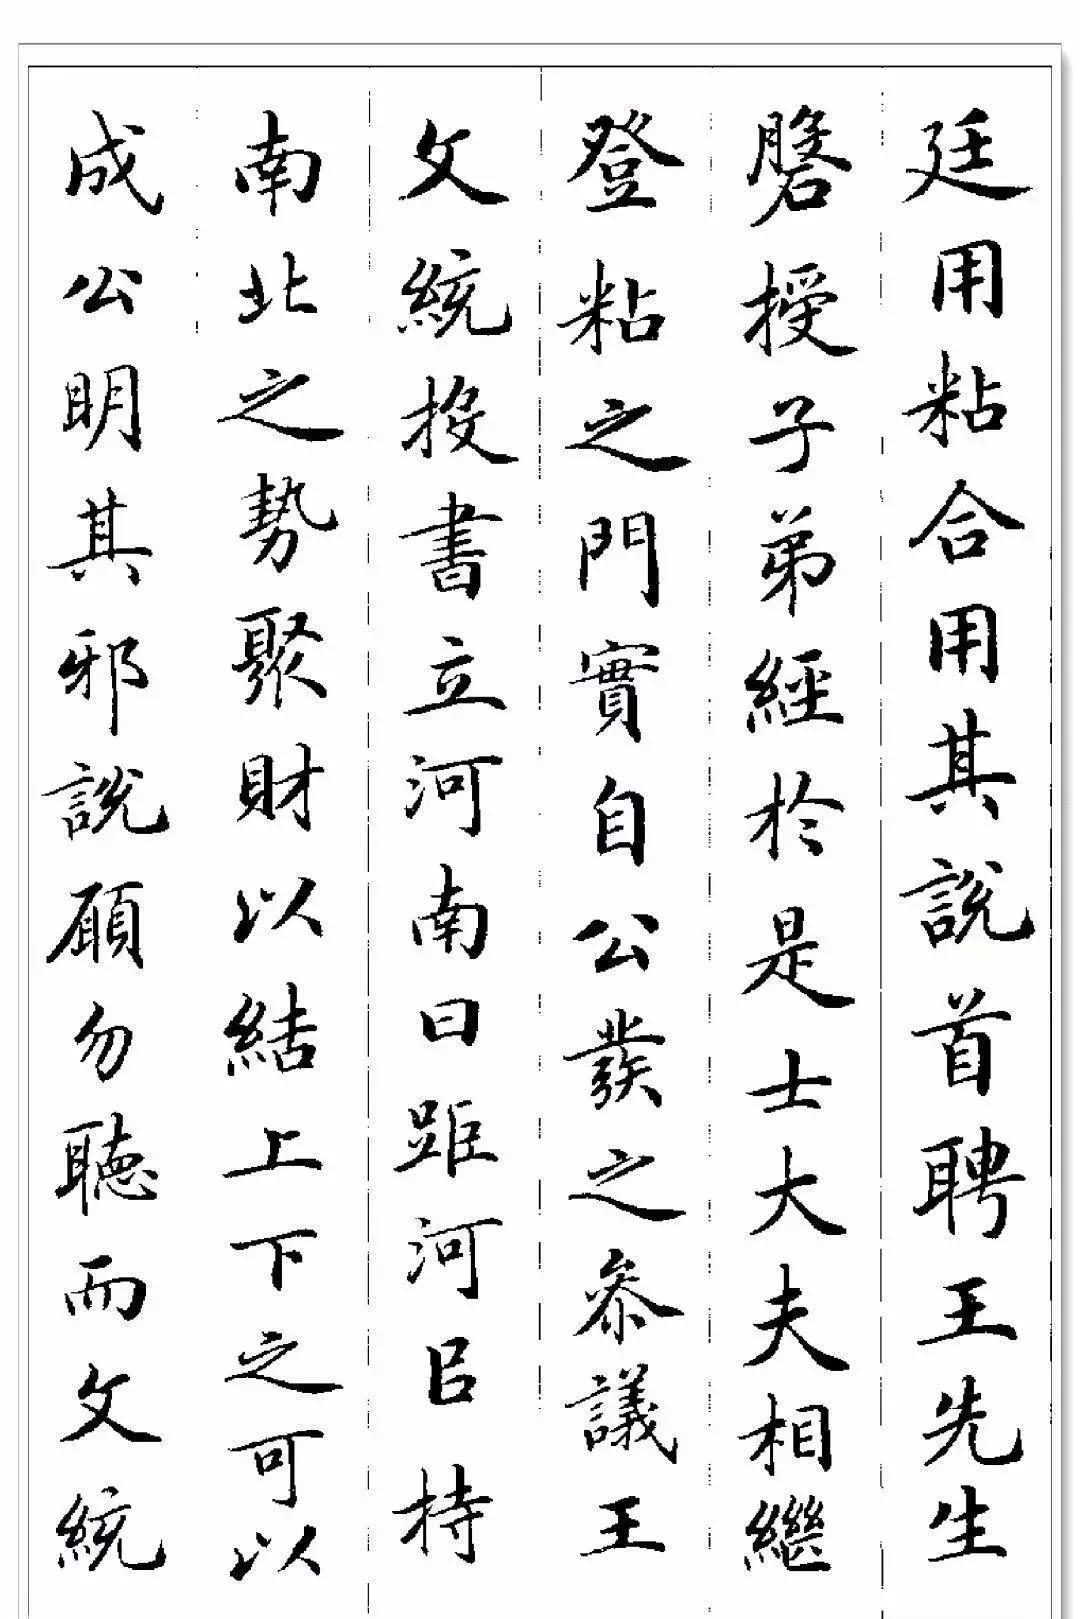 廷用粘合用其説首聘王先生
磐授子弟經於是士大夫相繼
登粘之門實自公發之參議王
文統投書立河南曰距河㠯持
南北之勢聚財以結上下之可以
成公明其邪說願勿聽而文統